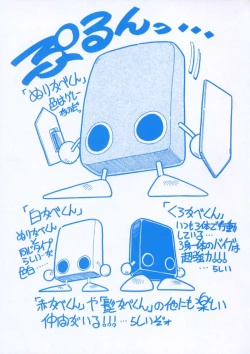 ぷるんっ・・・
「ぬりかべくん」
色はグレー
なのだ。
「白かべくん」
ぬりかべ
くんと
同じタイプ
らしい…だ
色白…
「くろかべくん」
いつも3体で行動
している…
3身一体のパイプは
超強力!!!
…らしい
「赤かべくん」や「藍かべくん」の他にも楽しい
仲間がいる!!!…らしいぞぉ